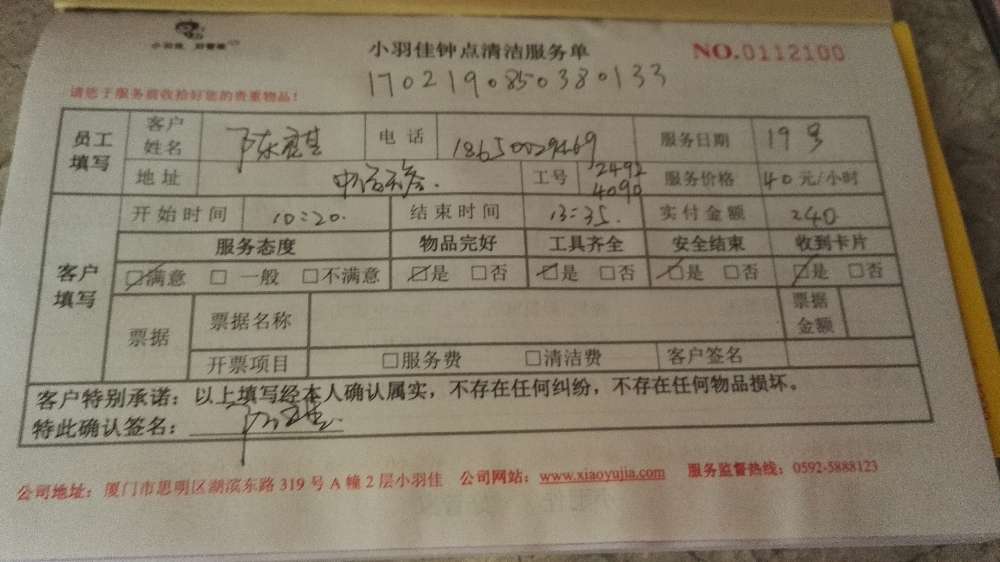 小羽佳钟点清洁服务单
NO.0112100
1702190850380133
请您于服务前收拾好您的贵重物品！
员工填写 客户姓名 陈 电话 18650029469 服务日期 19号
地址 工号 2492 4090 服务价格 40元/小时
客户填写 开始时间 10:20. 结束时间 13:35. 实付金额 240
服务态度 物品完好 工具齐全 安全结束 收到卡片
☑满意 □一般 □不满意 ☑是 □否 ☑是 □否 ☑是 □否 ☑是 □否
票据 票据名称 票据金额
开票项目 □服务费 □清洁费 客户签名
客户特别承诺：以上填写经本人确认属实，不存在任何纠纷，不存在任何物品损坏。
特此确认签名：
公司地址：厦门市思明区湖滨东路319号A幢2层小羽佳 公司网站：www.xiaoyujia.com 服务监督热线：0592-5888123